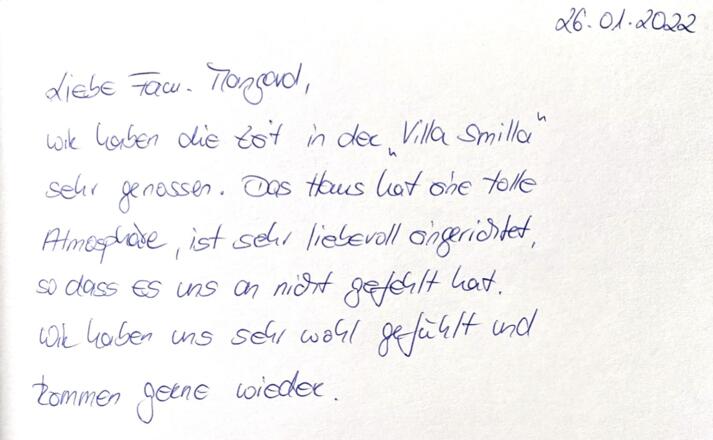 26.01.2022
Liebe Fam. Mangard,
wir haben die Zeit in der „Villa Smilla"
sehr genossen. Das Haus hat eine tolle
Atmosphäre, ist sehr liebevoll eingerichtet,
so dass es uns an nicht gefehlt hat.
Wir haben uns sehr wohl gefühlt und
kommen gerne wieder.